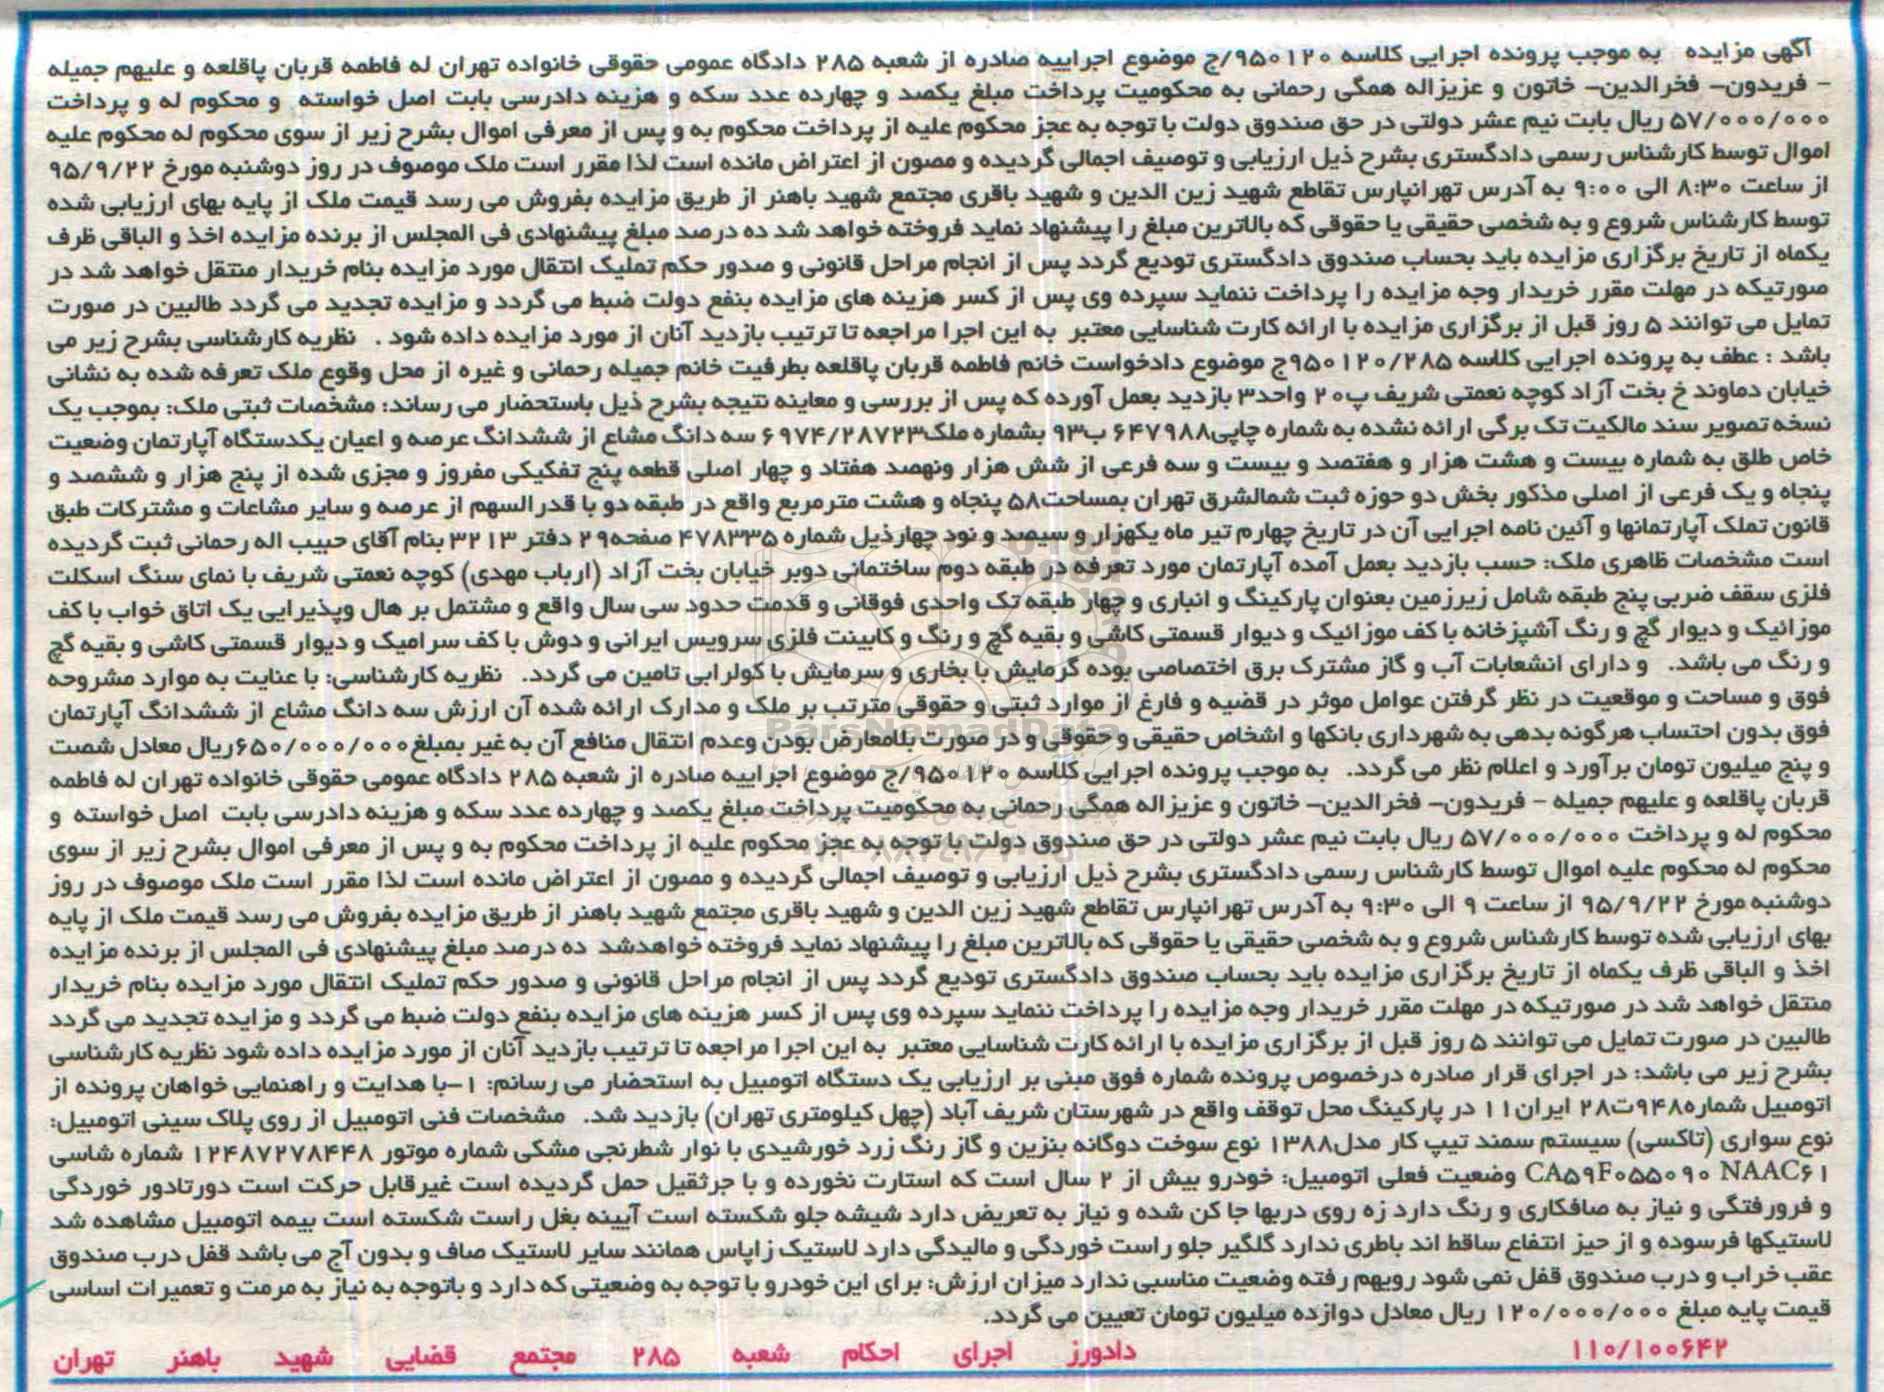 آگهی مزایده   به موجب پرونده اجرایی کلاسه ۹۵۰۱۲۰/ج موضوع اجراییه صادره از شعبه ۲۸۵ دادگاه عمومی حقوقی خانواده تهران له فاطمه قربان پاقلعه و علیهم جمیله
- فریدون- فخرالدین- خاتون و عزیزاله همگی رحمانی به محکومیت پرداخت مبلغ یکصد و چهارده عدد سکه و هزینه دادرسی بابت اصل خواسته و محکوم له و پرداخت
۵۷/۰۰۰/۰۰۰ ریال بابت نیم عشر دولتی در حق صندوق دولت با توجه به عجز محکوم علیه از پرداخت محکوم به و پس از معرفی اموال بشرح زیر از سوی محکوم له محکوم علیه
اموال توسط کارشناس رسمی دادگستری بشرح ذیل ارزیابی و توصیف اجمالی گردیده و مصون از اعتراض مانده است لذا مقرر است ملک موصوف در روز دوشنبه مورخ ۹۵/۹/۲۲
از ساعت ۸:۳۰ الی ۹:۰۰ به آدرس تهرانپارس تقاطع شهید زین الدین و شهید باقری مجتمع شهید باهنر از طریق مزایده بفروش می رسد قیمت ملک از پایه بهای ارزیابی شده
توسط کارشناس شروع و به شخصی حقیقی یا حقوقی که بالاترین مبلغ را پیشنهاد نماید فروخته خواهد شد ده درصد مبلغ پیشنهادی فی المجلس از برنده مزایده اخذ و الباقی ظرف
یکماه از تاریخ برگزاری مزایده باید بحساب صندوق دادگستری تودیع گردد پس از انجام مراحل قانونی و صدور حکم تملیک انتقال مورد مزایده بنام خریدار منتقل خواهد شد در
صورتیکه در مهلت مقرر خریدار وجه مزایده را پرداخت ننماید سپرده وی پس از کسر هزینه های مزایده بنفع دولت ضبط می گردد و مزایده تجدید می گردد طالبین در صورت
تمایل می توانند ۵ روز قبل از برگزاری مزایده با ارائه کارت شناسایی معتبر  به این اجرا مراجعه تا ترتیب بازدید آنان از مورد مزایده داده شود .  نظریه کارشناسی بشرح زیر می
باشد : عطف به پرونده اجرایی کلاسه ۹۵۰۱۲۰/۲۸۵ج موضوع دادخواست خانم فاطمه قربان پاقلعه بطرفیت خانم جمیله رحمانی و غیره از محل وقوع ملک تعرفه شده به نشانی
خیابان دماوند خ بخت آزاد کوچه نعمتی شریف پ۲۰ واحد۳ بازدید بعمل آورده که پس از بررسی و معاینه نتیجه بشرح ذیل باستحضار می رساند: مشخصات ثبتی ملک: بموجب یک
نسخه تصویر سند مالکیت تک برگی ارائه نشده به شماره چاپی۶۴۷۹۸۸ ب۹۳ بشماره ملک۶۹۷۴/۲۸۷۲۳ سه دانگ مشاع از ششدانگ عرصه و اعیان یکدستگاه آپارتمان وضعیت
خاص طلق به شماره بیست و هشت هزار و هفتصد و بیست و سه فرعی از شش هزار ونهصد هفتاد و چهار اصلی قطعه پنج تفکیکی مفروز و مجزی شده از پنج هزار و ششصد و
پنجاه و یک فرعی از اصلی مذکور بخش دو حوزه ثبت شمالشرق تهران بمساحت۵۸ پنجاه و هشت مترمربع واقع در طبقه دو با قدرالسهم از عرصه و سایر مشاعات و مشترکات طبق
قانون تملک آپارتمانها و آئین نامه اجرایی آن در تاریخ چهارم تیر ماه یکهزار و سیصد و نود چهارذیل شماره ۴۷۸۳۳۵ صفحه۲۹ دفتر ۳۲۱۳ بنام آقای حبیب اله رحمانی ثبت گردیده
است مشخصات ظاهری ملک: حسب بازدید بعمل آمده آپارتمان مورد تعرفه در طبقه دوم ساختمانی دوبر خیابان بخت آزاد (ارباب مهدی) کوچه نعمتی شریف با نمای سنگ اسکلت
فلزی سقف ضربی پنج طبقه شامل زیرزمین بعنوان پارکینگ و انباری و چهار طبقه تک واحدی فوقانی و قدمت حدود سی سال واقع و مشتمل بر هال وپذیرایی یک اتاق خواب با کف
موزائیک و دیوار گچ و رنگ آشپزخانه با کف موزائیک و دیوار قسمتی کاشی و بقیه گچ و رنگ و کابینت فلزی سرویس ایرانی و دوش با کف سرامیک و دیوار قسمتی کاشی و بقیه گچ
و رنگ می باشد.  و دارای انشعابات آب و گاز مشترک برق اختصاصی بوده گرمایش با بخاری و سرمایش با کولرابی تامین می گردد.  نظریه کارشناسی: با عنایت به موارد مشروحه
فوق و مساحت و موقعیت در نظر گرفتن عوامل موثر در قضیه و فارغ از موارد ثبتی و حقوقی مترتب بر ملک و مدارک ارائه شده آن ارزش سه دانگ مشاع از ششدانگ آپارتمان
فوق بدون احتساب هرگونه بدهی به شهرداری بانکها و اشخاص حقیقی و حقوقی و در صورت بلامعارض بودن وعدم انتقال منافع آن به غیر بمبلغ۶۵۰/۰۰۰/۰۰۰ریال معادل شصت
و پنج میلیون تومان برآورد و اعلام نظر می گردد.  به موجب پرونده اجرایی کلاسه ۹۵۰۱۲۰/ج موضوع اجراییه صادره از شعبه ۲۸۵ دادگاه عمومی حقوقی خانواده تهران له فاطمه
قربان پاقلعه و علیهم جمیله - فریدون- فخرالدین- خاتون و عزیزاله همگی رحمانی به محکومیت پرداخت مبلغ یکصد و چهارده عدد سکه و هزینه دادرسی بابت  اصل خواسته  و
محکوم له و پرداخت ۵۷/۰۰۰/۰۰۰ ریال بابت نیم عشر دولتی در حق صندوق دولت با توجه به عجز محکوم علیه از پرداخت محکوم به و پس از معرفی اموال بشرح زیر از سوی
محکوم له محکوم علیه اموال توسط کارشناس رسمی دادگستری بشرح ذیل ارزیابی و توصیف اجمالی گردیده و مصون از اعتراض مانده است لذا مقرر است ملک موصوف در روز
دوشنبه مورخ ۹۵/۹/۲۲ از ساعت ۹ الی ۹:۳۰ به آدرس تهرانپارس تقاطع شهید زین الدین و شهید باقری مجتمع شهید باهنر از طریق مزایده بفروش می رسد قیمت ملک از پایه
بهای ارزیابی شده توسط کارشناس شروع و به شخصی حقیقی یا حقوقی که بالاترین مبلغ را پیشنهاد نماید فروخته خواهدشد  ده درصد مبلغ پیشنهادی فی المجلس از برنده مزایده
اخذ و الباقی ظرف یکماه از تاریخ برگزاری مزایده باید بحساب صندوق دادگستری تودیع گردد پس از انجام مراحل قانونی و صدور حکم تملیک انتقال مورد مزایده بنام خریدار
منتقل خواهد شد در صورتیکه در مهلت مقرر خریدار وجه مزایده را پرداخت ننماید سپرده وی پس از کسر هزینه های مزایده بنفع دولت ضبط می گردد و مزایده تجدید می گردد
طالبین در صورت تمایل می توانند ۵ روز قبل از برگزاری مزایده با ارائه کارت شناسایی معتبر  به این اجرا مراجعه تا ترتیب بازدید آنان از مورد مزایده داده شود نظریه کارشناسی
بشرح زیر می باشد: در اجرای قرار صادره درخصوص پرونده شماره فوق مبنی بر ارزیابی یک دستگاه اتومبیل به استحضار می رسانم: ۱-با هدایت و راهنمایی خواهان پرونده از
اتومبیل شماره۹۴۸ت۲۸ ایران۱۱ در پارکینگ محل توقف واقع در شهرستان شریف آباد (چهل کیلومتری تهران) بازدید شد.  مشخصات فنی اتومبیل از روی پلاک سینی اتومبیل:
نوع سواری (تاکسی) سیستم سمند تیپ کار مدل۱۳۸۸ نوع سوخت دوگانه بنزین و گاز رنگ زرد خورشیدی با نوار شطرنجی مشکی شماره موتور ۱۲۴۸۷۲۷۸۴۴۸ شماره شاسی
CA۵۹F۰۵۵۰۹۰ NAAC۶۱ وضعیت فعلی اتومبیل: خودرو بیش از ۲ سال است که استارت نخورده و با جرثقیل حمل گردیده است غیرقابل حرکت است دورتادور خوردگی
و فرورفتگی و نیاز به صافکاری و رنگ دارد زه روی دربها جا کن شده و نیاز به تعریض دارد شیشه جلو شکسته است آیینه بغل راست شکسته است بیمه اتومبیل مشاهده شد
لاستیکها فرسوده و از حیز انتفاع ساقط اند باطری ندارد گلگیر جلو راست خوردگی و مالیدگی دارد لاستیک زاپاس همانند سایر لاستیک صاف و بدون آج می باشد قفل درب صندوق
عقب خراب و درب صندوق قفل نمی شود رویهم رفته وضعیت مناسبی ندارد میزان ارزش: برای این خودرو با توجه به وضعیتی که دارد و باتوجه به نیاز به مرمت و تعمیرات اساسی
قیمت پایه مبلغ ۱۲۰/۰۰۰/۰۰۰ ریال معادل دوازده میلیون تومان تعیین می گردد.
۱۱۰/۱۰۰۶۴۲ دادورز اجرای احکام شعبه ۲۸۵ مجتمع قضایی شهید باهنر تهران
ParsNamadData